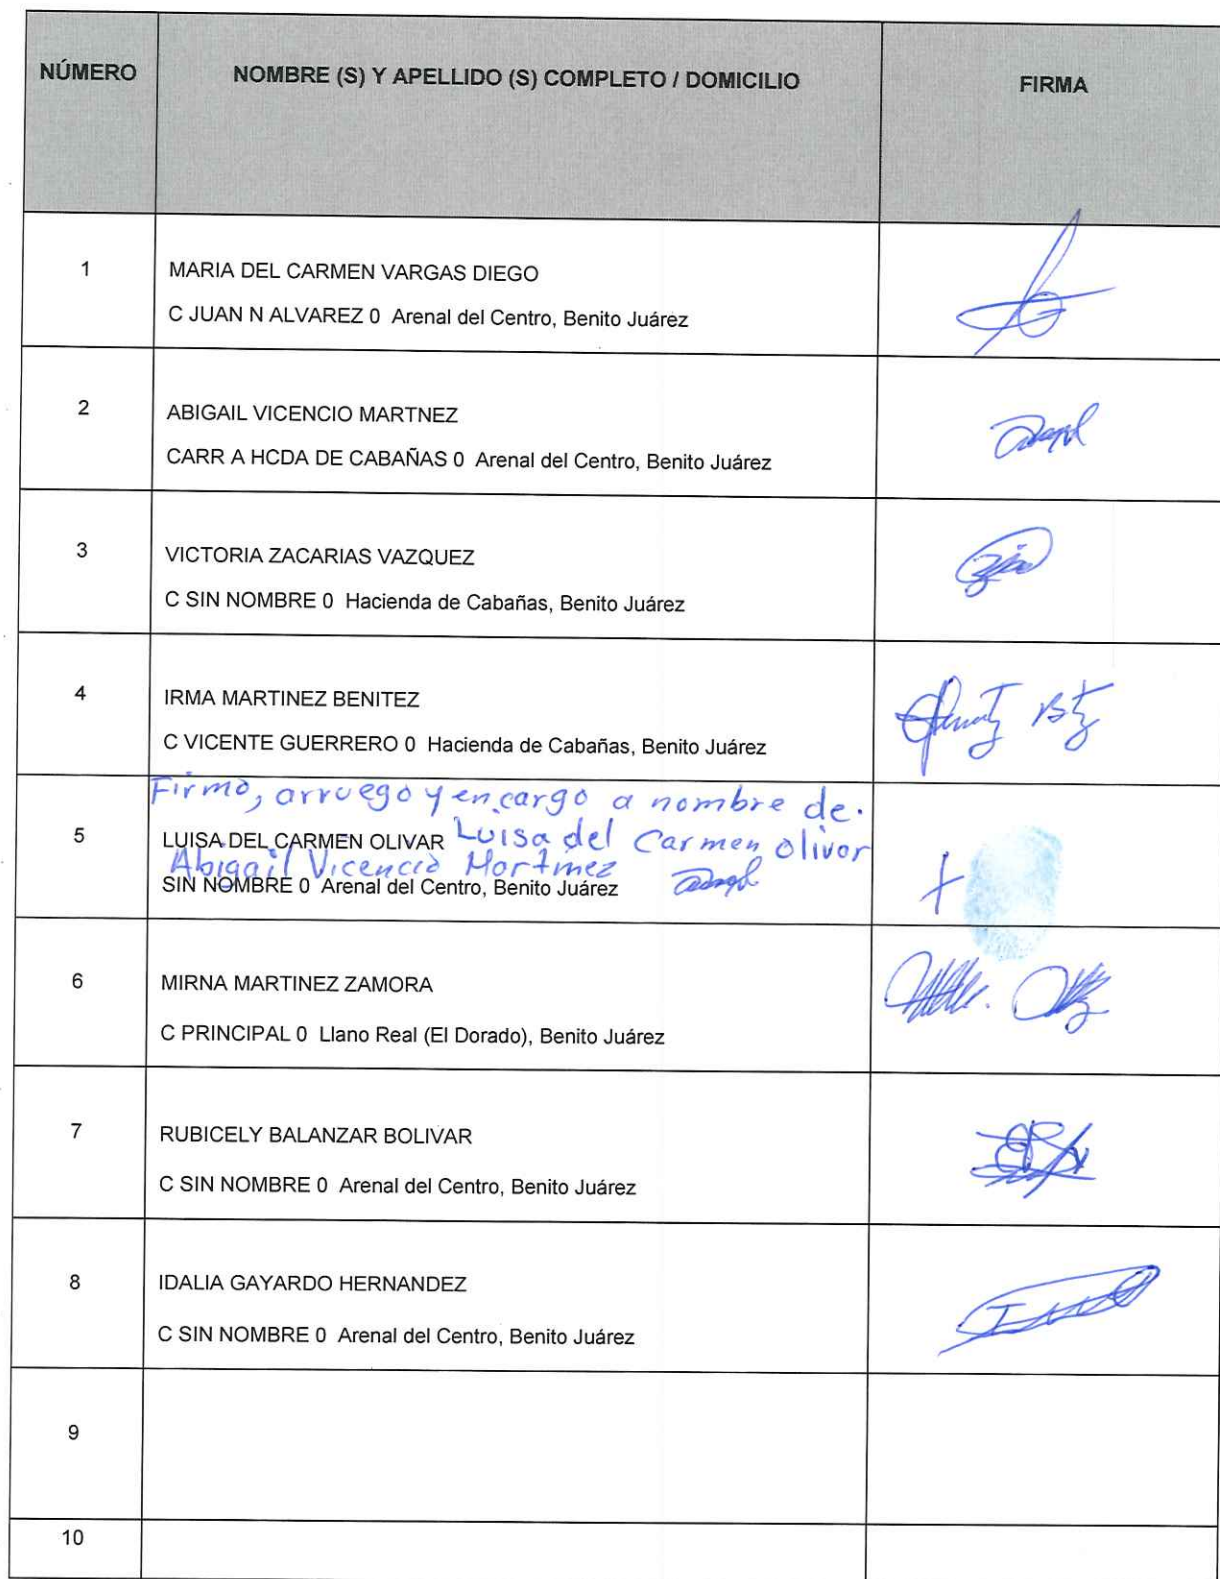 NÚMERO
NOMBRE (S) Y APELLIDO (S) COMPLETO / DOMICILIO
FIRMA
1
MARIA DEL CARMEN VARGAS DIEGO
C JUAN N ALVAREZ 0 Arenal del Centro, Benito Juárez
2
ABIGAIL VICENCIO MARTNEZ
CARR A HCDA DE CABAÑAS 0 Arenal del Centro, Benito Juárez
3
VICTORIA ZACARIAS VAZQUEZ
C SIN NOMBRE 0 Hacienda de Cabañas, Benito Juárez
4
IRMA MARTINEZ BENITEZ
C VICENTE GUERRERO 0 Hacienda de Cabañas, Benito Juárez
Firmo, arruego y encargo a nombre de.
5
LUISA DEL CARMEN OLIVAR Luisa del Carmen Olivar
Abigail Vicencio Martinez
SIN NOMBRE 0 Arenal del Centro, Benito Juárez
6
MIRNA MARTINEZ ZAMORA
C PRINCIPAL 0 Llano Real (El Dorado), Benito Juárez
7
RUBICELY BALANZAR BOLIVAR
C SIN NOMBRE 0 Arenal del Centro, Benito Juárez
8
IDALIA GAYARDO HERNANDEZ
C SIN NOMBRE 0 Arenal del Centro, Benito Juárez
9
10